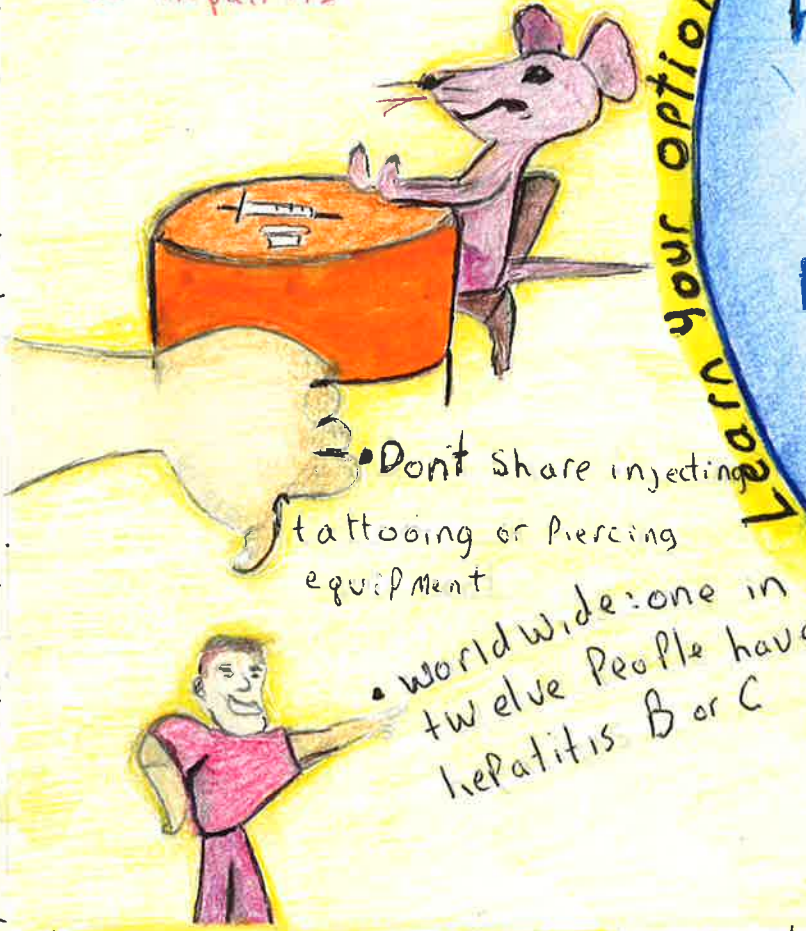 Learn your option
•Don't share injecting
tattooing or Piercing
equipment
•worldwide:one in
twelve People have
hepatitis B or C